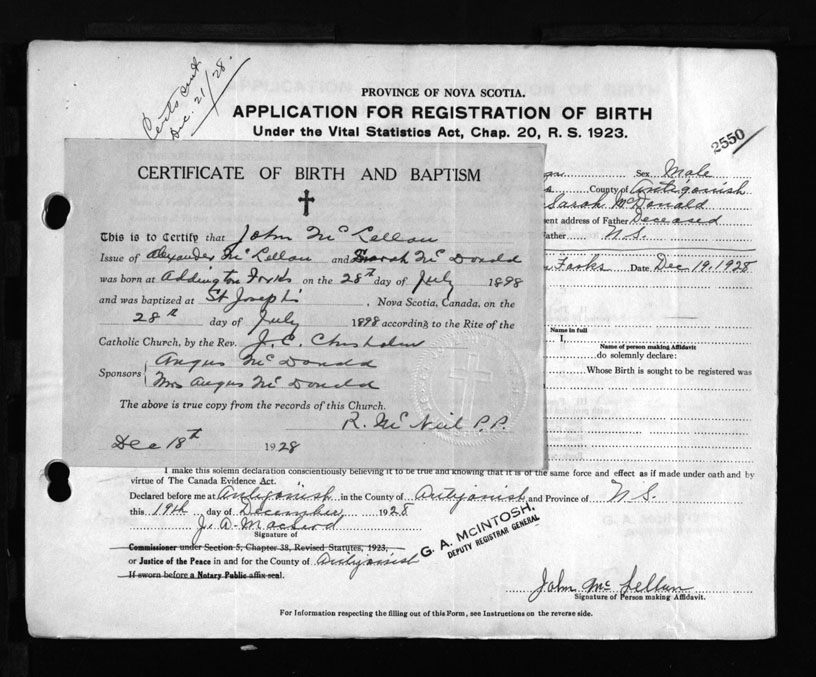 Certs sent
Dec. 21/28.
PROVINCE OF NOVA SCOTIA.
APPLICATION FOR REGISTRATION OF BIRTH
Under the Vital Statistics Act, Chap. 20, R. S. 1923.
2550
Sex Male
County of Antigonish
Sarah McDonald
ent address of Father Deceased
ather N.S.
Forks Date Dec 19. 1928
CERTIFICATE OF BIRTH AND BAPTISM
This is to Certify that John McLellan
Issue of Alexander McLellan and Sarah McDonald
was born at Addington Forks on the 28th day of July 1898
and was baptized at St Joseph's, Nova Scotia, Canada, on the
28th day of July 1898 according to the Rite of the
Catholic Church, by the Rev. J. C. Chisholm
Sponsors Angus McDonald
Mrs Angus McDonald
The above is true copy from the records of this Church.
R. McNeil P.P.
Dec 18th 1928
Name in full
I,
Name of person making Affidavit
do solemnly declare:
Whose Birth is sought to be registered was
I make this solemn declaration conscientiously believing it to be true and knowing that it is of the same force and effect as if made under oath and by
virtue of The Canada Evidence Act.
Declared before me at Antigonish in the County of Antigonish and Province of N.S.
this 19th day of December, 1928
J. A. MacLeod
Signature of
Commissioner under Section 5, Chapter 38, Revised Statutes, 1923,
or Justice of the Peace in and for the County of Antigonish
If sworn before a Notary Public affix seal.
G. A. MCINTOSH,
DEPUTY REGISTRAR GENERAL
John McLellan
Signature of Person making Affidavit.
For Information respecting the filling out of this Form, see Instructions on the reverse side.